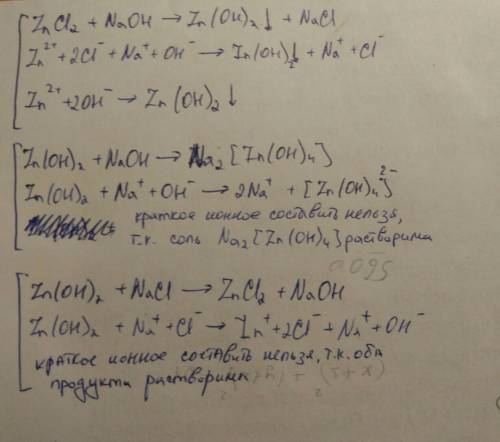 ZnCl₂ + NaOH → Zn(OH)₂↓ + NaCl
Zn²⁺ + 2Cl⁻ + Na⁺ + OH⁻ → Zn(OH)₂↓ + Na⁺ + Cl⁻
Zn²⁺ + 2OH⁻ → Zn(OH)₂↓
Zn(OH)₂ + NaOH → Na₂[Zn(OH)₄]
Zn(OH)₂ + Na⁺ + OH⁻ → 2Na⁺ + [Zn(OH)₄]²⁻
краткое ионное составить нельзя,
т.к. соль Na₂[Zn(OH)₄] растворима
Zn(OH)₂ + NaCl → ZnCl₂ + NaOH
Zn(OH)₂ + Na⁺ + Cl⁻ → Zn⁺ + 2Cl⁻ + Na⁺ + OH⁻
краткое ионное составить нельзя, т.к. оба
продукта растворимы